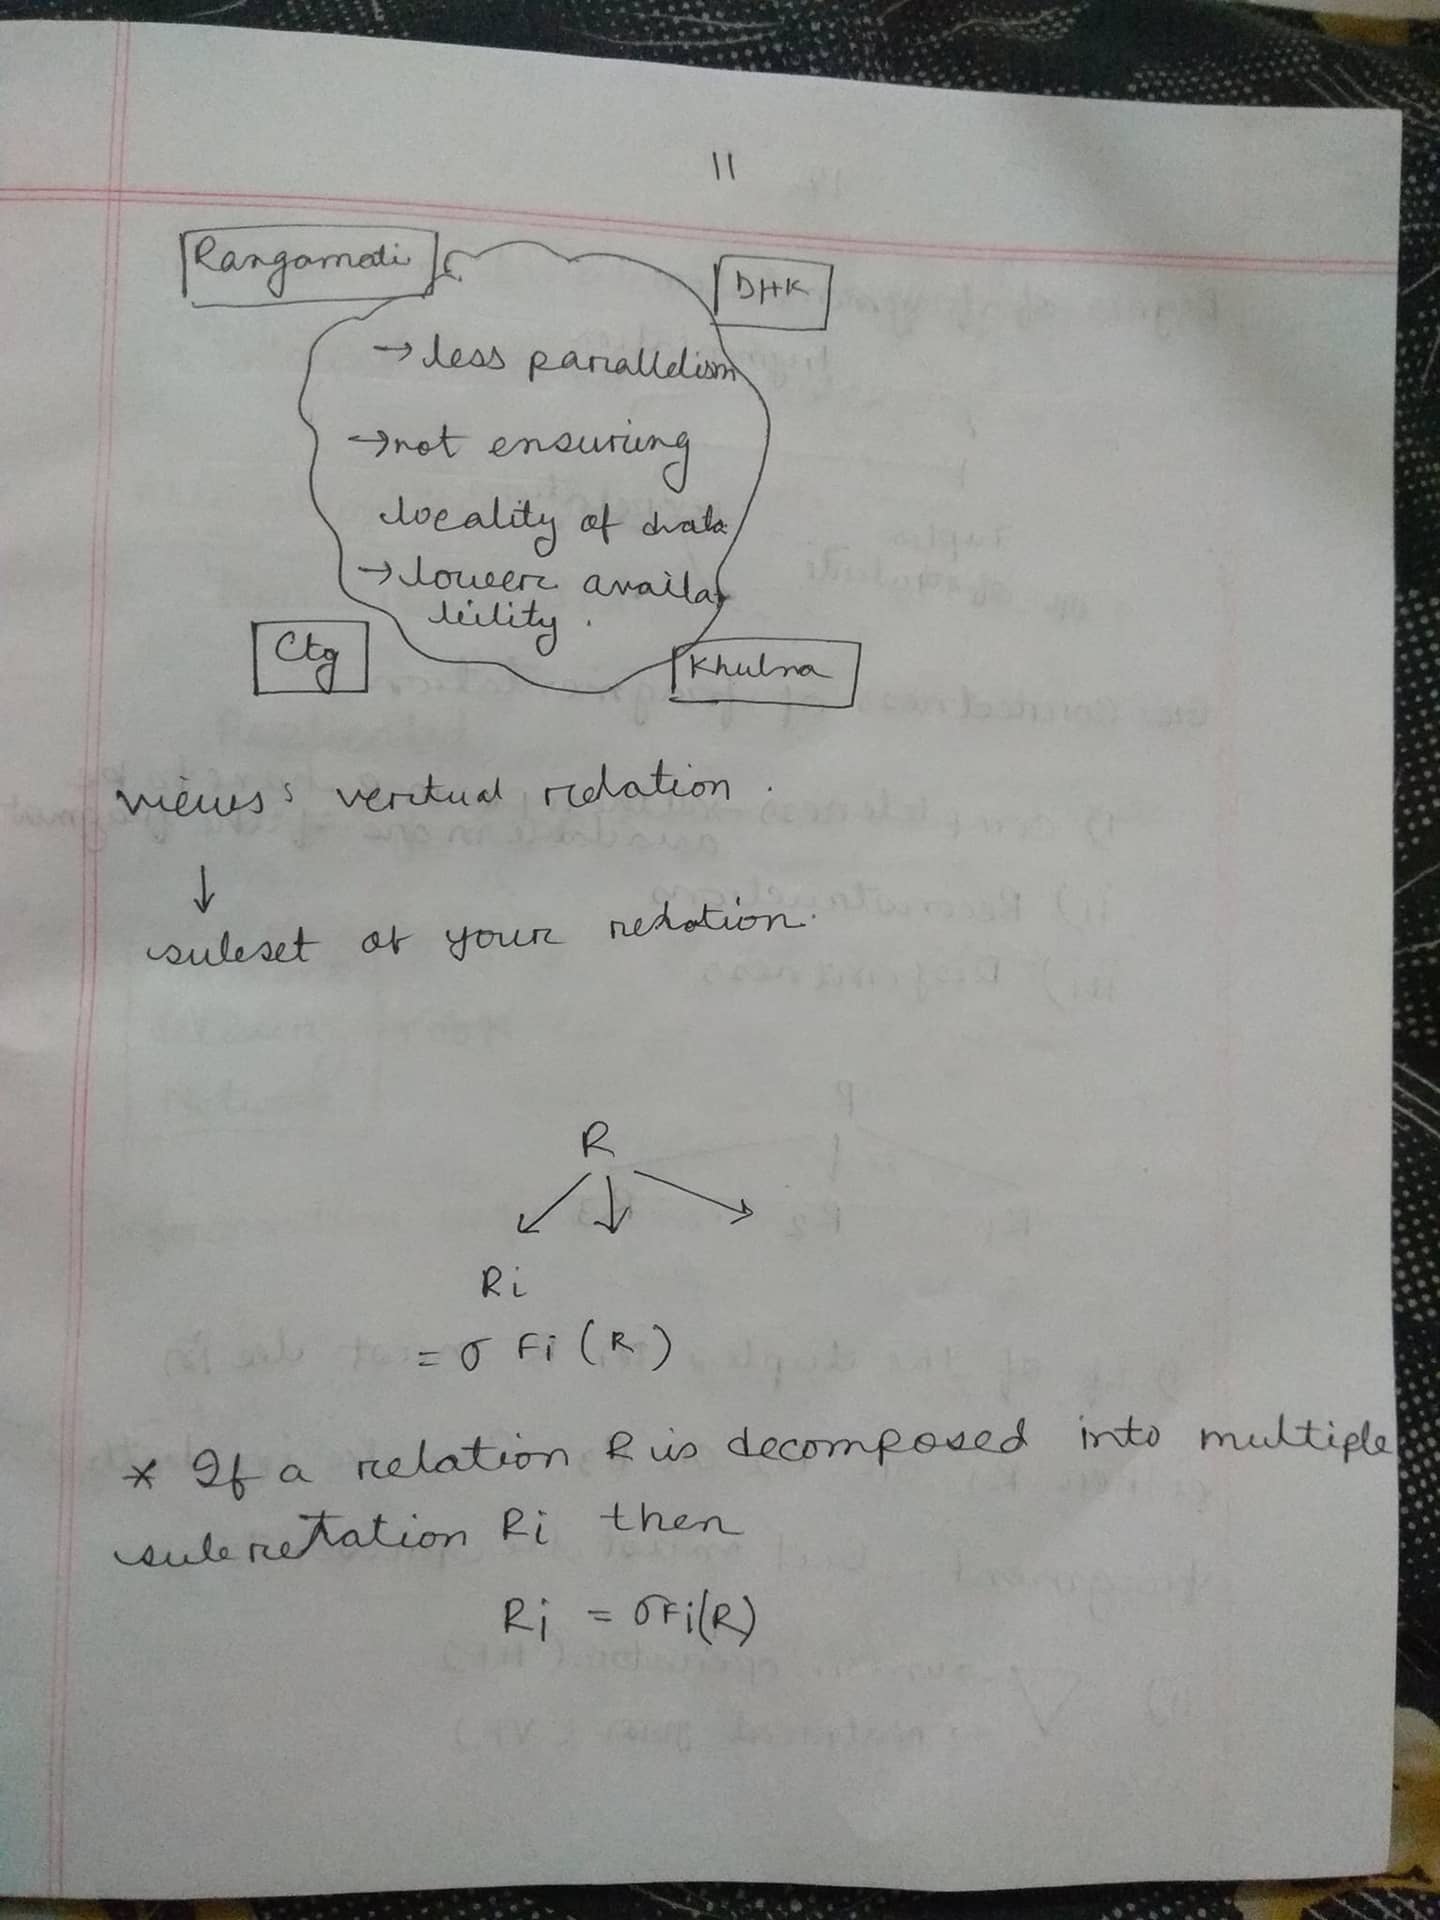 11
Rangamati
DHK
→ less parallelism
→ not ensuring
locality of data
→ lower availa
bility.
Ctg
Khulna
views: vertual relation.
↓
subset of your relation.
R
Ri
= σ Fi (R)
* If a relation R is decomposed into multiple
subrelation Ri then
Ri = σFi(R)